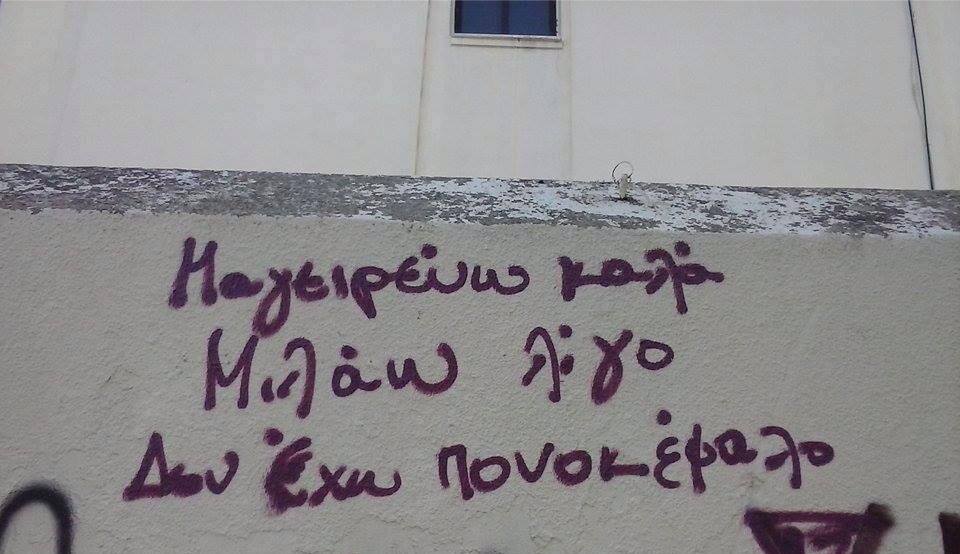 Μαγειρεύω καλά
Μιλάω λίγο
Δεν έχω πονοκέφαλο